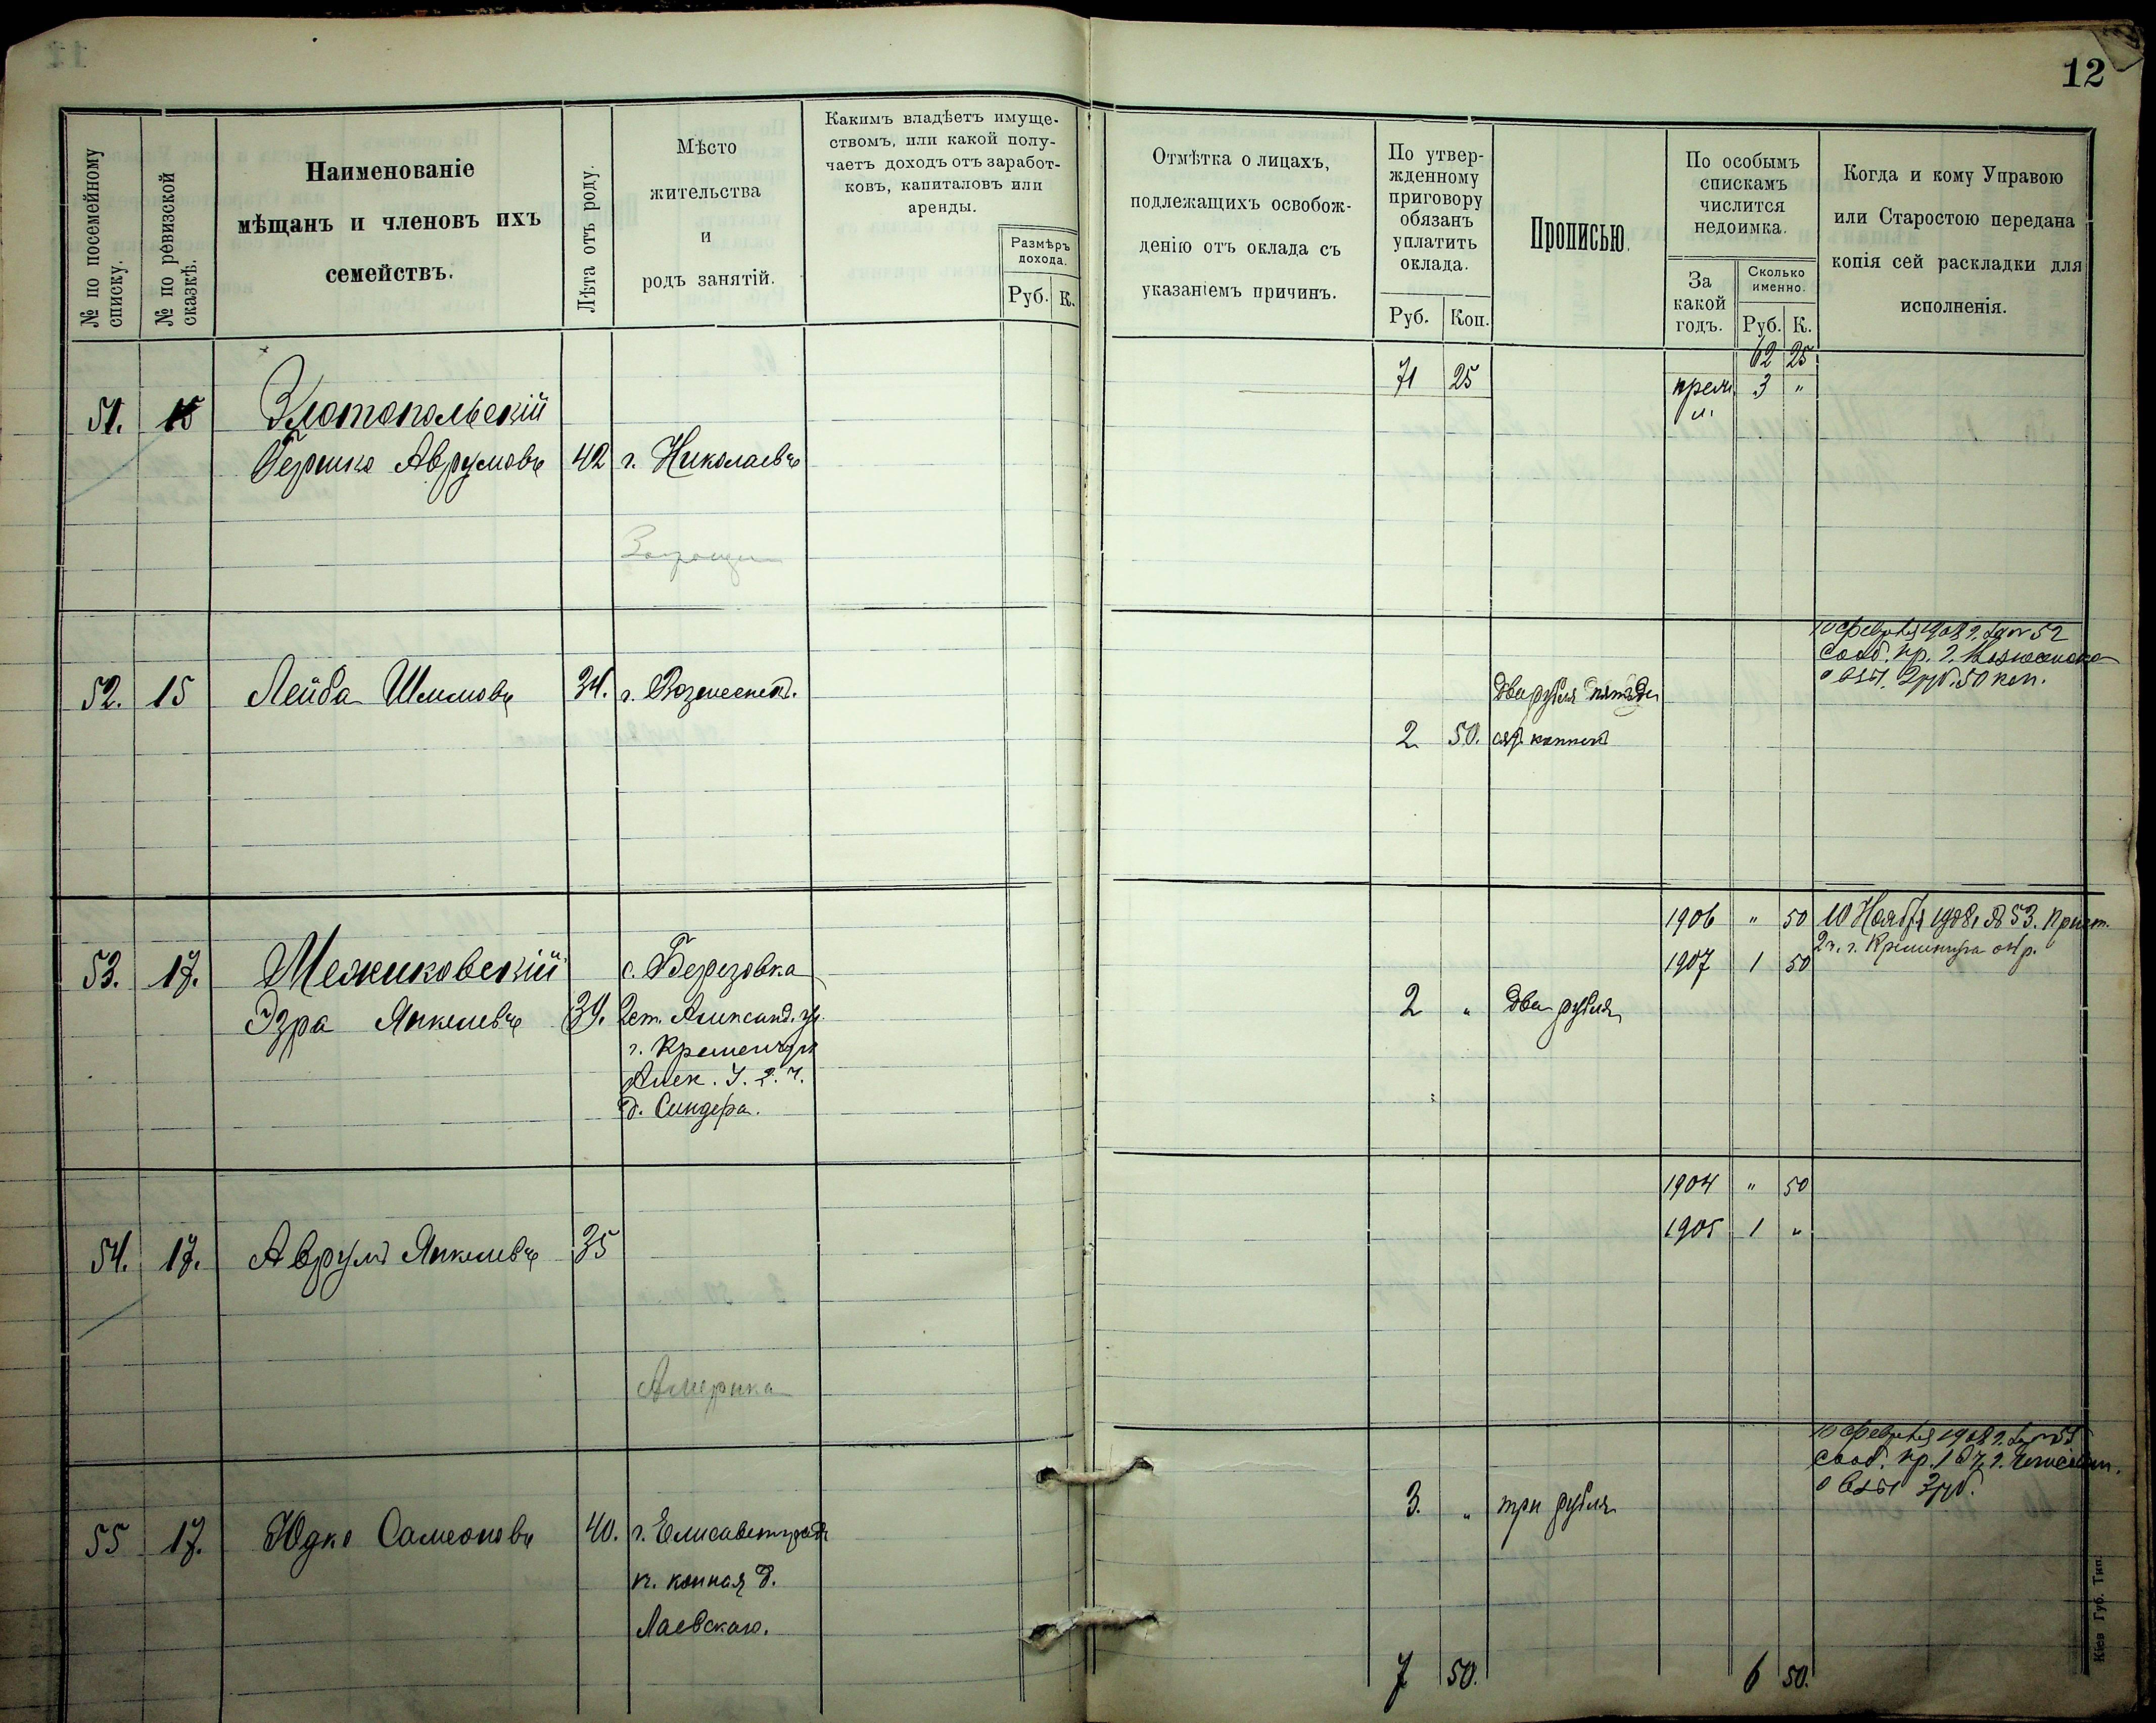 12
№ по посемейному списку.
№ по ревизской сказкѣ.
Наименованіе
мѣщанъ и членовъ ихъ
семействъ.
Лѣта отъ роду.
Мѣсто
жительства
и
родъ занятій.
Какимъ владѣетъ имуще-
ствомъ, или какой полу-
чаетъ доходъ отъ заработ-
ковъ, капиталовъ или
аренды.
Размѣръ
дохода.
Руб. К.
Отмѣтка о лицахъ,
подлежащихъ освобож-
денію отъ оклада съ
указаніемъ причинъ.
По утвер-
жденному
приговору
обязанъ
уплатить
оклада.
Руб. Коп.
Прописью.
По особымъ
спискамъ
числится
недоимка.
За
какой
годъ.
Сколько
именно.
Руб. К.
Когда и кому Управою
или Старостою передана
копія сей раскладки для
исполненія.
62 25
71 25
3 "
51. 15 Златопольскій
Гершко Аврумовъ 42 г. Николаевъ
10 февраля 1908 г. за № 52
сооб. пр. г. Вознесенска
о взы. 2 руб. 50 коп.
52. 15 Лейба Шлимовъ 34. г. Вознесенскъ.
два рубля пятьде
2 50. сят копѣекъ
1906 " 50 10 Ноября 1908 № 53. Прист.
2 ч. г. Кременчуга
1907 1 50
53. 17. Межиковскій с. Березовка
Эзра Янкелевъ 39. 2 ст. Александ. у.
г. Кременчугъ
Алек. У. 2. ч.
д. Синдера.
2 " два рубля
1904 " 50
1905 1 "
54. 17. Аврумъ Янкелевъ 35
Америка
10 февраля 1908 г. за №
сооб. пр. 1 г. Елисавет.
о взы 3 руб.
55 17. Юдко Самсоновъ 40. г. Елисаветградъ
к. конная д.
Лаевскаго.
3. " три рубля
7 50. 6 50.
Кіев Губ. Тип.